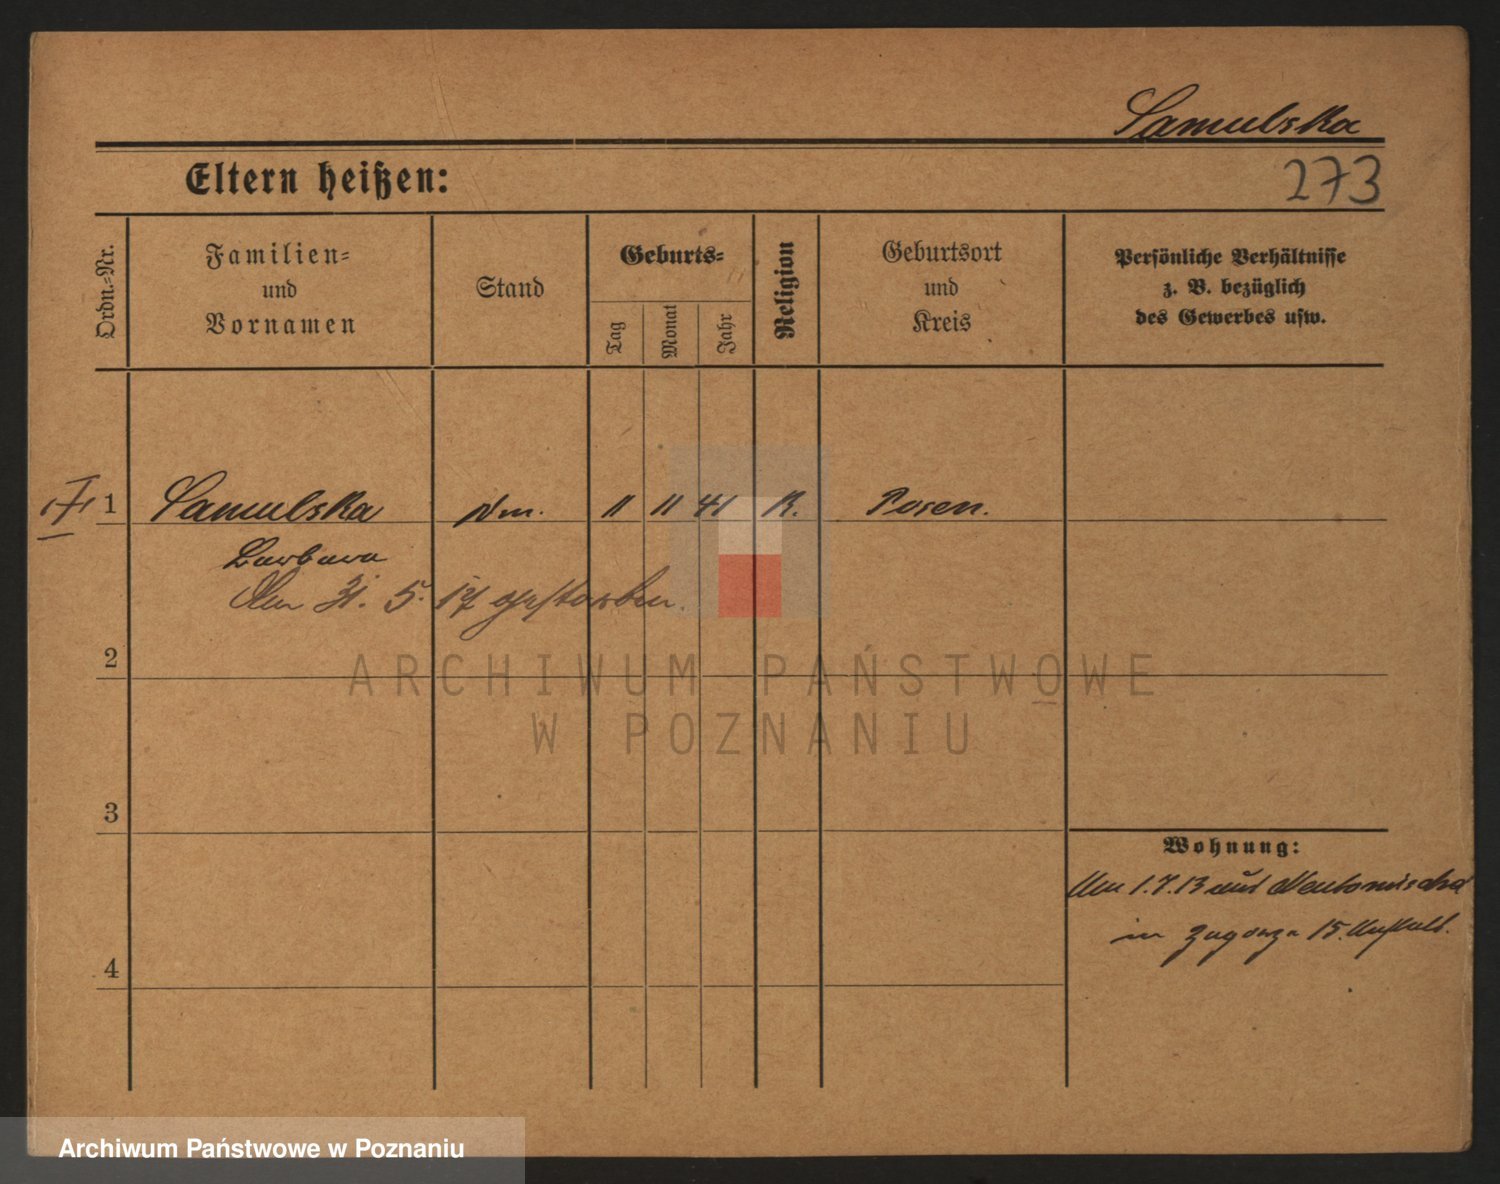 Samulska
Eltern heißen:
273
Ordn.-Nr.
Familien-
und
Vornamen
Stand
Geburts-
Tag
Monat
Jahr
Religion
Geburtsort
und
Kreis
Persönliche Verhältnisse
z. B. bezüglich
des Gewerbes usw.
1 Samulska 11 11 41 K. Posen.
Barbara
Am 31. 5. 17 gestorben.
2
ARCHIWUM PAŃSTWOWE
W POZNANIU
3
Wohnung:
1.7.13 aus Neutomischel
in Zagorze 15.
4
Archiwum Państwowe w Poznaniu